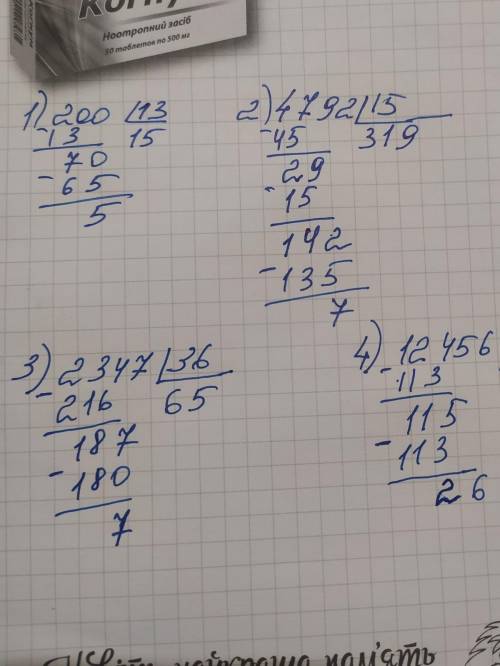 Ноотропний засіб
30 таблеток по 500 мг
1) 200 |13
-13 15
70
-65
5
2) 4792 |15
-45 319
29
-15
142
-135
7
3) 2347 |36
-216 65
187
-180
7
4) 12456
-113
115
-113
26